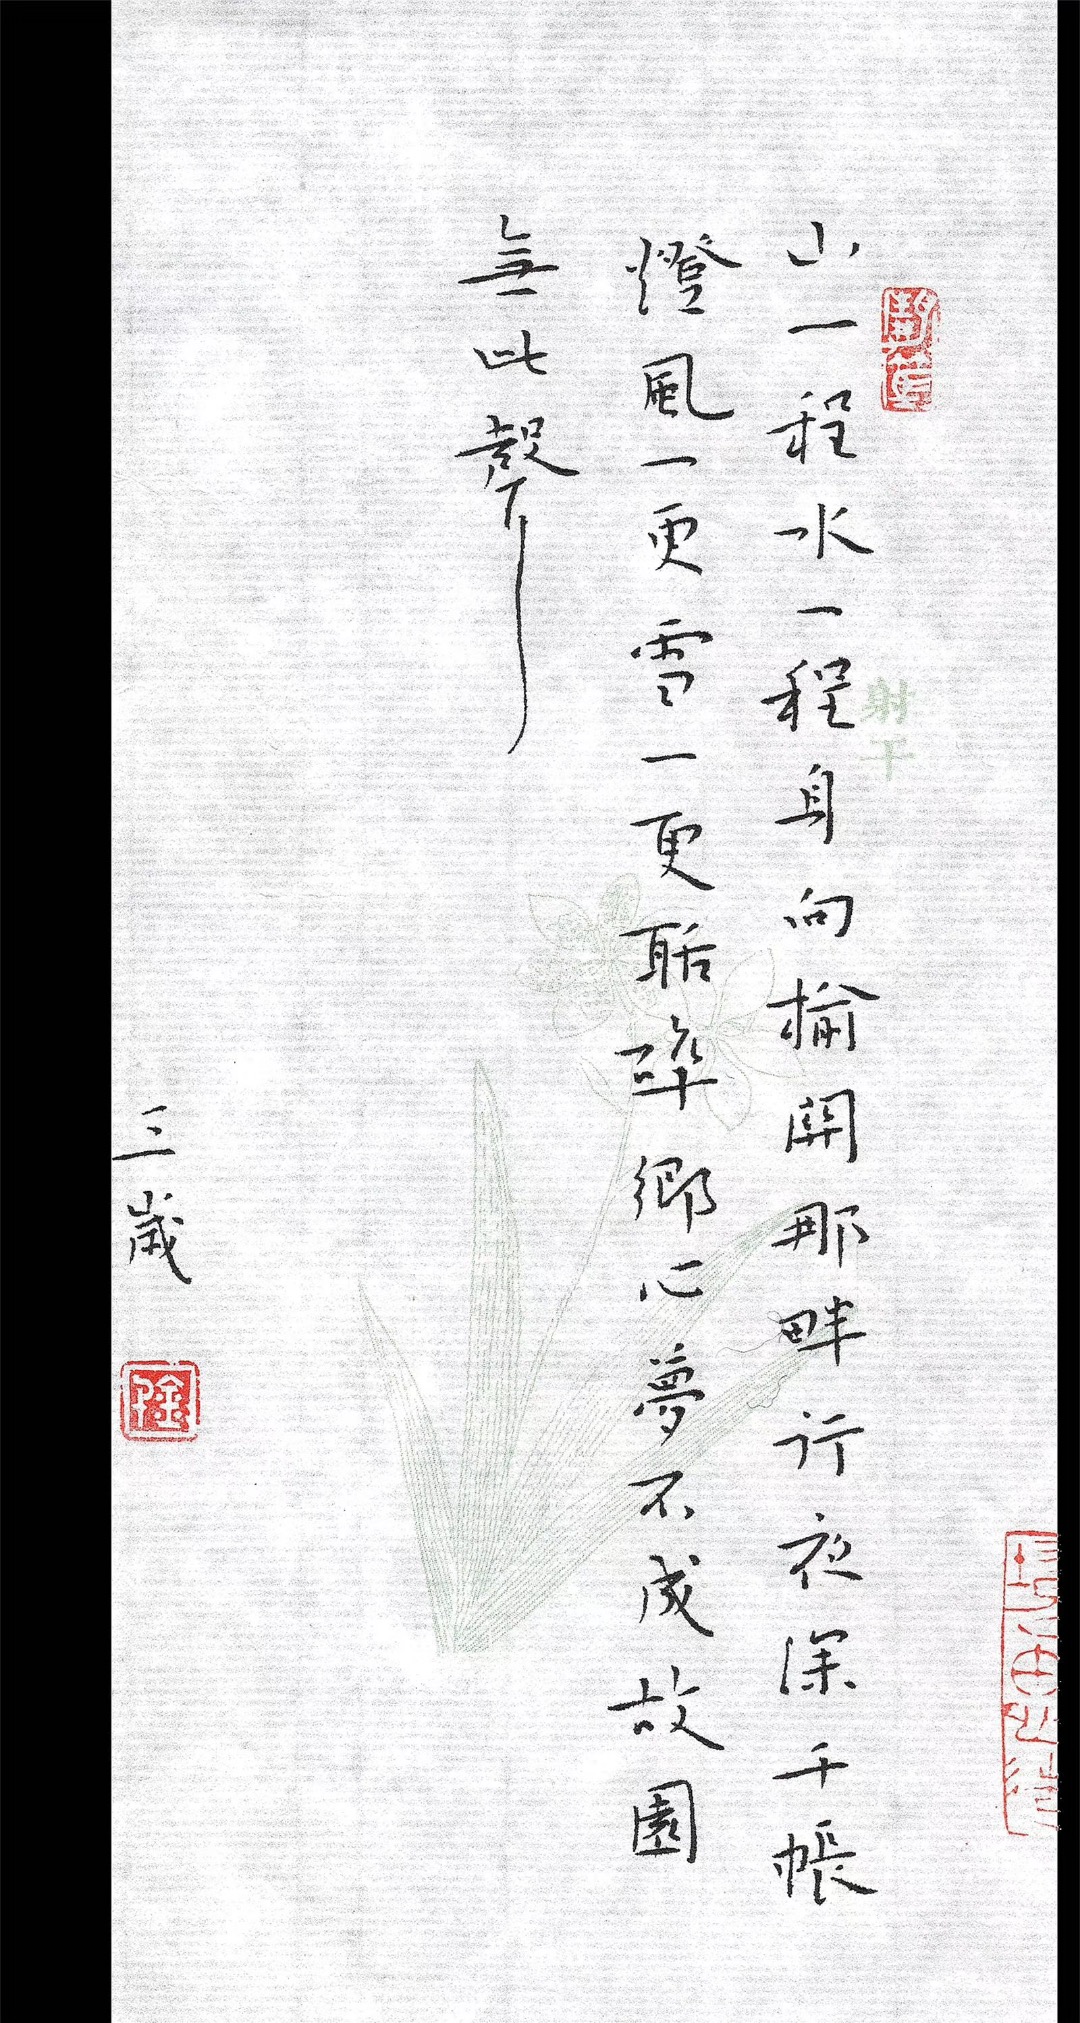 射干
山一程水一程身向榆關那畔行夜深千帳
燈風一更雪一更聒碎鄉心夢不成故園
無此聲
三歲